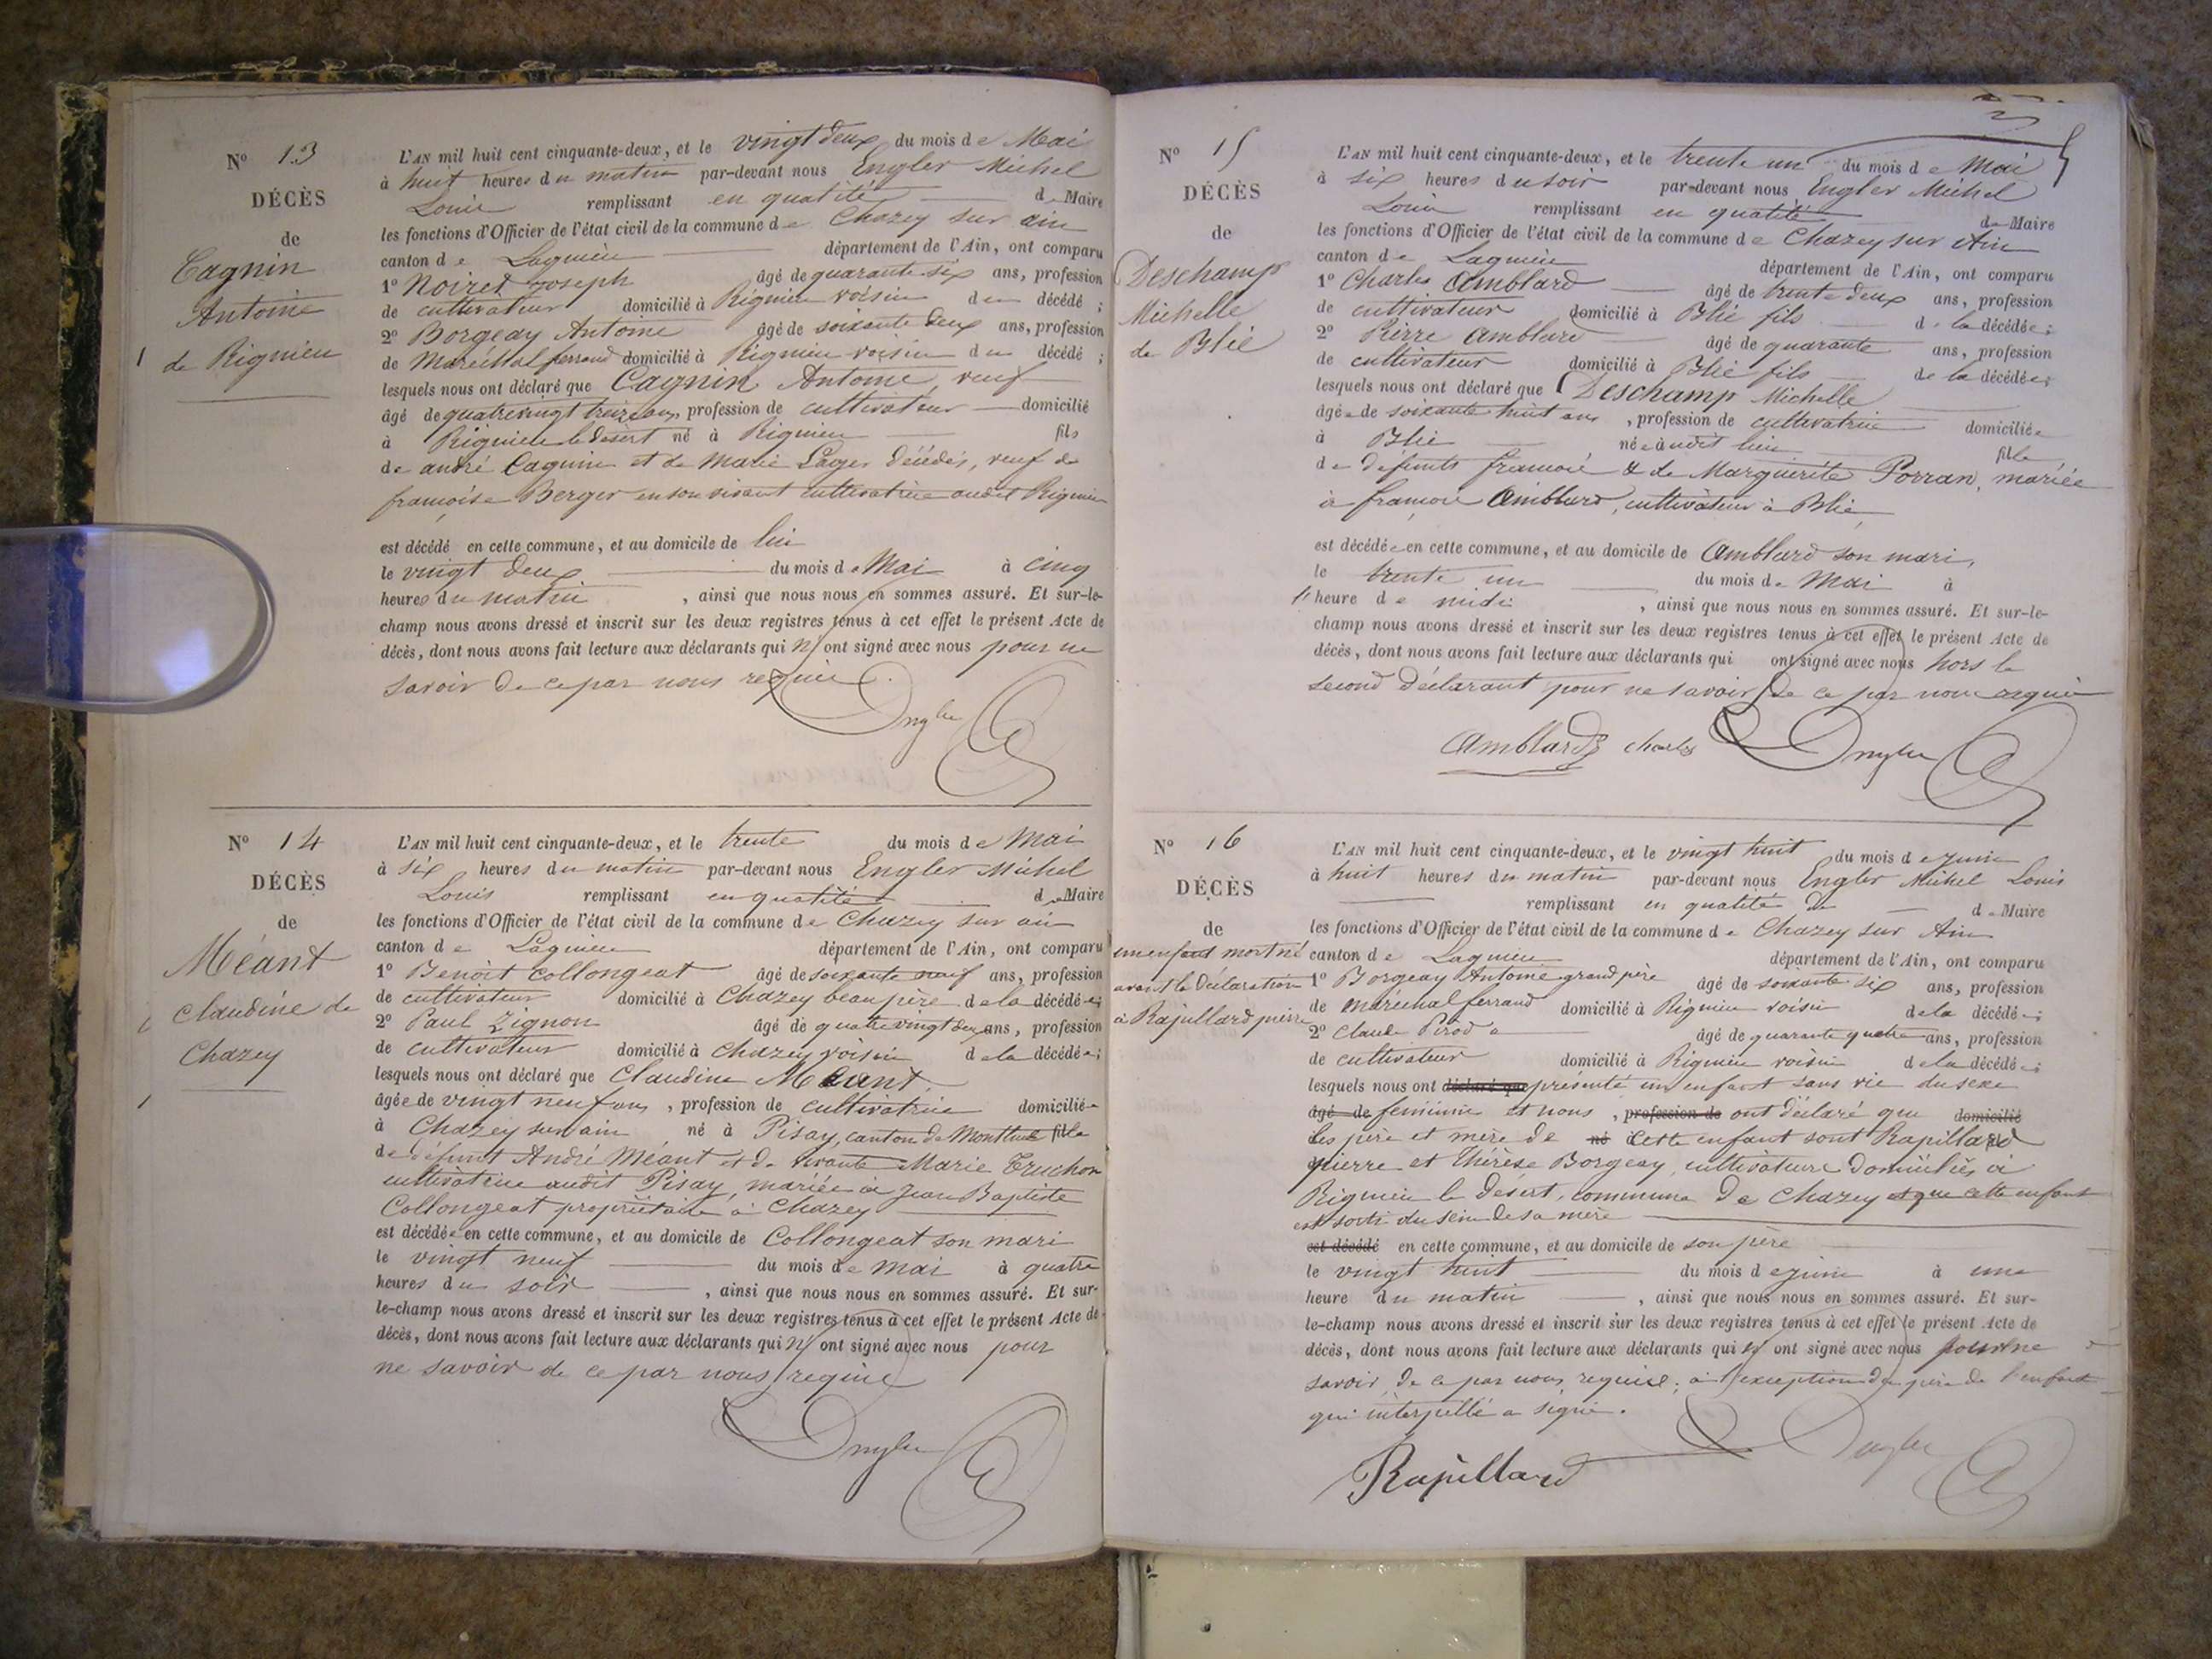 N° 13
DÉCÈS
de
Cagnin
Antoine
de Rignieu
L'AN mil huit cent cinquante-deux, et le vingt deux du mois de Mai
à huit heures du matin par-devant nous Engler Michel
Louis remplissant en qualité de Maire
les fonctions d'Officier de l'état civil de la commune de Chazey sur ain
canton de Lagnieu département de l'Ain, ont comparu
1° Noiret joseph âgé de quarante six ans, profession
de cultivateur domicilié à Rignieu voisin du décédé ;
2° Borgeay Antoine âgé de soixante deux ans, profession
de Maréchal ferrand domicilié à Rignieu voisin du décédé ;
lesquels nous ont déclaré que Cagnin Antoine, veuf
âgé de quatrevingt treize ans, profession de cultivateur domicilié
à Rignieu le désert né à Rignieu fils
de andré Cagnin et de Marie Lager décédés, veuf de
françoise Berger en son vivant cultivatrice audit Rignieu
est décédé en cette commune, et au domicile de lui
le vingt deux du mois de Mai à cinq
heures du matin , ainsi que nous nous en sommes assuré. Et sur-le-
champ nous avons dressé et inscrit sur les deux registres tenus à cet effet le présent Acte de
décès, dont nous avons fait lecture aux déclarants qui n'ont signé avec nous pour ne
savoir de ce par nous requis.
Engler
N° 14
DÉCÈS
de
Méant
Claudine de
Chazey
L'AN mil huit cent cinquante-deux, et le trente du mois de Mai
à six heures du matin par-devant nous Engler Michel
Louis remplissant en qualité de Maire
les fonctions d'Officier de l'état civil de la commune de Chazey sur ain
canton de Lagnieu département de l'Ain, ont comparu
1° Benoit Collongeat âgé de soixante neuf ans, profession
de cultivateur domicilié à Chazey beau père de la décédée ;
2° Paul Zignon âgé de quatrevingt deux ans, profession
de cultivateur domicilié à Chazey voisin de la décédée ;
lesquels nous ont déclaré que Claudine Méant
âgée de vingt neuf ans , profession de cultivatrice domiciliée
à Chazey sur ain né à Pisay, canton de Montluel fille
de défunt André Méant et de vivante Marie Truchon
cultivatrice audit Pisay, mariée à Jean Baptiste
Collongeat propriétaire à Chazey
est décédée en cette commune, et au domicile de Collongeat son mari
le vingt neuf du mois de mai à quatre
heures du soir , ainsi que nous nous en sommes assuré. Et sur-
le-champ nous avons dressé et inscrit sur les deux registres tenus à cet effet le présent Acte de
décès, dont nous avons fait lecture aux déclarants qui n'ont signé avec nous pour
ne savoir de ce par nous requis
Engler
N° 15
DÉCÈS
de
Deschamp
Michelle
de Blié
L'AN mil huit cent cinquante-deux, et le trente un du mois de Mai
à six heures du soir par-devant nous Engler Michel
Louis remplissant en qualité de Maire
les fonctions d'Officier de l'état civil de la commune de Chazey sur Ain
canton de Lagnieu département de l'Ain, ont comparu
1° Charles Amblard âgé de trente deux ans, profession
de cultivateur domicilié à Blié fils de la décédée ;
2° Pierre Amblard âgé de quarante ans, profession
de cultivateur domicilié à Blié fils de la décédée ;
lesquels nous ont déclaré que Deschamp Michelle
âgée de soixante huit ans , profession de cultivatrice domiciliée
à Blié née audit lieu fille
de défunts françois & de Marguerite Porran, mariée
à françois Amblard, cultivateur à Blié
est décédée en cette commune, et au domicile de Amblard son mari,
le trente un du mois de Mai à
11 heure de midi , ainsi que nous nous en sommes assuré. Et sur-le-
champ nous avons dressé et inscrit sur les deux registres tenus à cet effet le présent Acte de
décès, dont nous avons fait lecture aux déclarants qui ont signé avec nous hors le
second déclarant pour ne savoir de ce par nous requis
Amblard charles Engler
N° 16
DÉCÈS
de
un enfant mort né
avant la déclaration
à Rapillard pierre
L'AN mil huit cent cinquante-deux, et le vingt huit du mois de juin
à huit heures du matin par-devant nous Engler Michel Louis
remplissant en qualité de de Maire
les fonctions d'Officier de l'état civil de la commune de Chazey sur Ain
canton de Lagnieu département de l'Ain, ont comparu
1° Borgeay Antoine grand père âgé de soixante six ans, profession
de maréchal ferrand domicilié à Rignieu voisin de la décédée ;
2° Claude Pirod âgé de quarante quatre ans, profession
de cultivateur domicilié à Rignieu voisin de la décédée ;
lesquels nous ont déclaré que présenté un enfant sans vie du sexe
âgé de féminin et nous , profession de ont déclaré que domicilié
les père et mère de né cette enfant sont Rapillard
pierre et Thérèse Borgeay, cultivateurs domiciliés à
Rignieu le désert, commune de Chazey et que cette enfant
est sorti du sein de sa mère
est décédé en cette commune, et au domicile de son père
le vingt huit du mois de juin à une
heure du matin , ainsi que nous nous en sommes assuré. Et sur-
le-champ nous avons dressé et inscrit sur les deux registres tenus à cet effet le présent Acte de
décès, dont nous avons fait lecture aux déclarants qui n'ont signé avec nous pour ne
savoir de ce par nous requis ; à l'exception du père de l'enfant
qui interpellé a signé.
Rapillard Engler